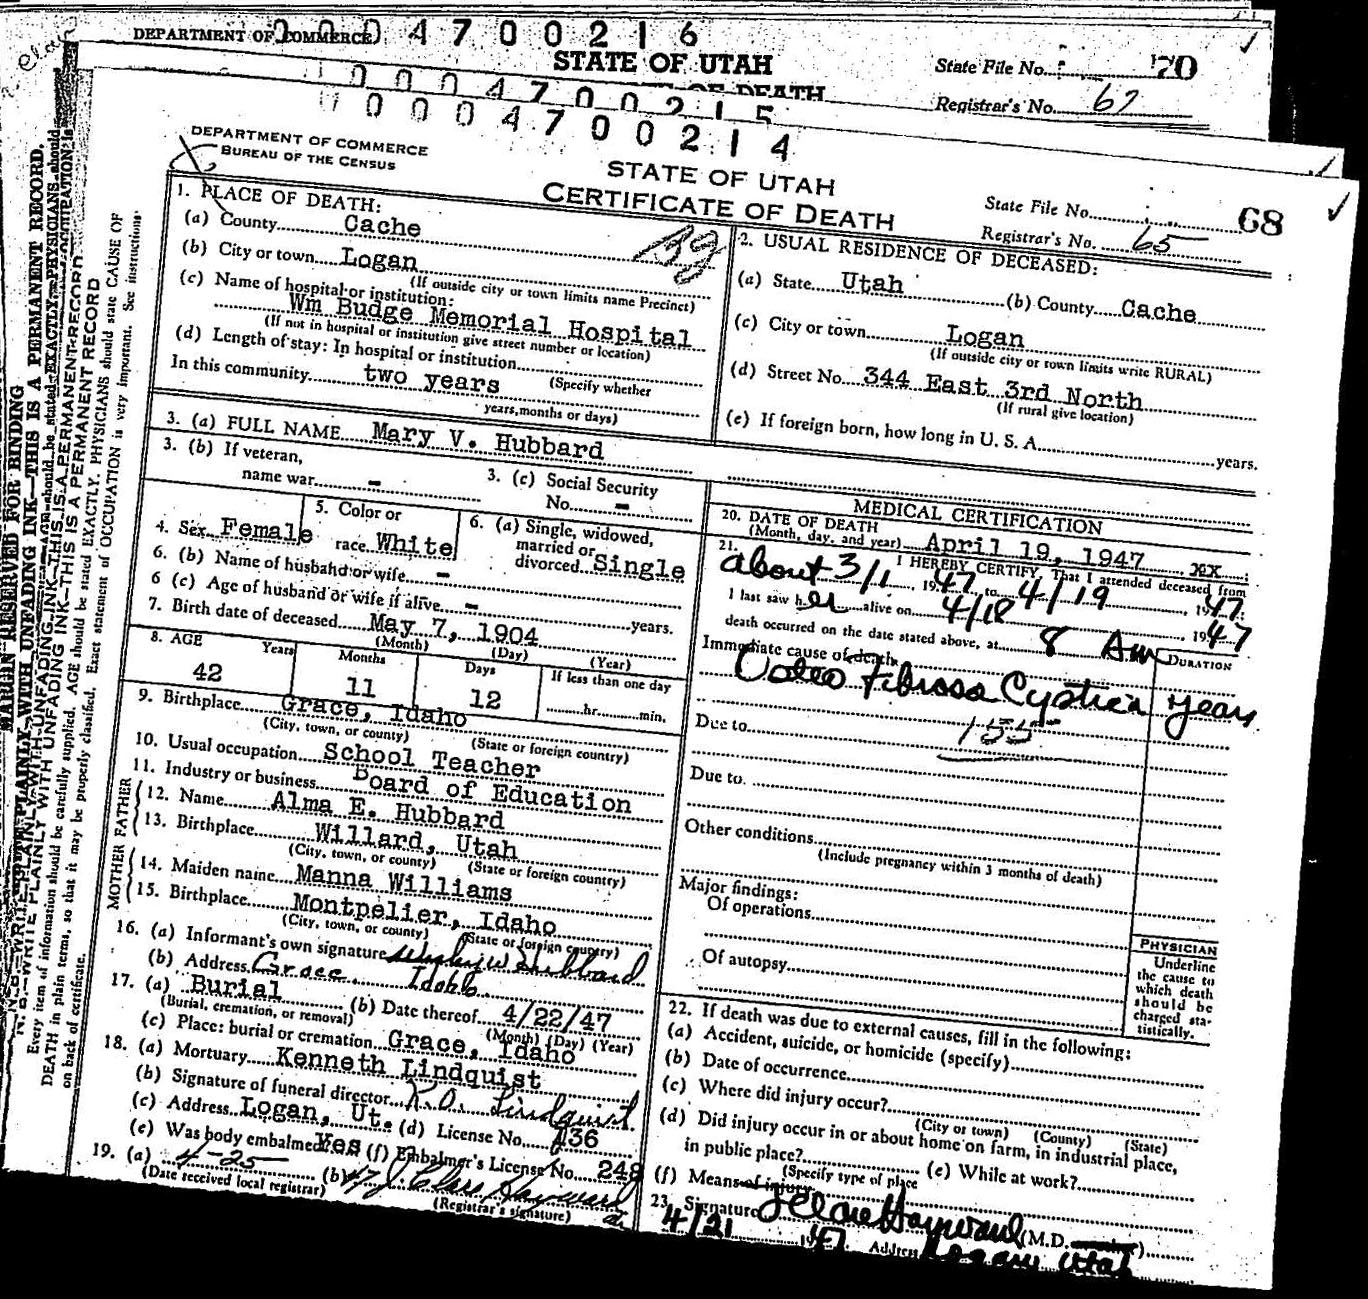 DEPARTMENT OF COMMERCE
0004700216
STATE OF UTAH
State File No. 70
Registrar's No. 67
0004700215
OF DEATH
0004700214
DEPARTMENT OF COMMERCE
BUREAU OF THE CENSUS
STATE OF UTAH
CERTIFICATE OF DEATH
State File No. 68
Registrar's No. 65
MARGIN RESERVED FOR BINDING
N. B.—WRITE PLAINLY WITH UNFADING INK—THIS IS A PERMANENT RECORD
Every item of information should be carefully supplied. AGE should be stated EXACTLY. PHYSICIANS should state CAUSE OF
DEATH in plain terms, so that it may be properly classified. Exact statement of OCCUPATION is very important. See instructions
on back of certificate.
1. PLACE OF DEATH:
(a) County Cache
(b) City or town Logan
(If outside city or town limits name Precinct)
(c) Name of hospital or institution:
Wm Budge Memorial Hospital
(If not in hospital or institution give street number or location)
(d) Length of stay: In hospital or institution
In this community two years (Specify whether
years, months or days)
2. USUAL RESIDENCE OF DECEASED:
(a) State Utah (b) County Cache
(c) City or town Logan
(If outside city or town limits write RURAL)
(d) Street No. 344 East 3rd North
(If rural give location)
(e) If foreign born, how long in U. S. A. years.
3. (a) FULL NAME Mary V. Hubbard
3. (b) If veteran,
name war -
3. (c) Social Security
No. -
4. Sex Female
5. Color or
race White
6. (a) Single, widowed,
married or
divorced Single
6. (b) Name of husband or wife -
6 (c) Age of husband or wife if alive - years.
7. Birth date of deceased May 7, 1904
(Month) (Day) (Year)
8. AGE Years Months Days If less than one day
42 11 12 hr. min.
9. Birthplace Grace, Idaho
(City, town, or county) (State or foreign country)
10. Usual occupation School Teacher
11. Industry or business Board of Education
FATHER
12. Name Alma E. Hubbard
13. Birthplace Willard, Utah
(City, town, or county) (State or foreign country)
MOTHER
14. Maiden name Manna Williams
15. Birthplace Montpelier, Idaho
(City, town, or county) (State or foreign country)
16. (a) Informant's own signature Hubbard
(b) Address Grace Idaho
17. (a) Burial (b) Date thereof 4/22/47
(Burial, cremation, or removal) (Month) (Day) (Year)
(c) Place: burial or cremation Grace, Idaho
18. (a) Mortuary Kenneth Lindquist
(b) Signature of funeral director K. O. Lindquist
(c) Address Logan, Ut. (d) License No. 436
(e) Was body embalmed Yes (f) Embalmer's License No. 248
19. (a) 4-25 47 (b) Hayward
(Date received local registrar) (Registrar's signature)
MEDICAL CERTIFICATION
20. DATE OF DEATH
(Month, day, and year) April 19, 1947 XX
21. I HEREBY CERTIFY, That I attended deceased from
about 3/1, 1947 to 4/19, 1947
I last saw her alive on 4/18, 1947
death occurred on the date stated above, at 8 Am
Immediate cause of death DURATION
Osteo Fibrosa Cystica years
155
Due to
Due to
Other conditions
(Include pregnancy within 3 months of death)
Major findings:
Of operations
Of autopsy
PHYSICIAN
Underline
the cause to
which death
should be
charged sta-
tistically.
22. If death was due to external causes, fill in the following:
(a) Accident, suicide, or homicide (specify)
(b) Date of occurrence
(c) Where did injury occur?
(City or town) (County) (State)
(d) Did injury occur in or about home on farm, in industrial place,
in public place? (e) While at work?
(Specify type of place
(f) Means of injury
23. Signature Hayward (M.D.
4/21 1947 Address Logan, Utah